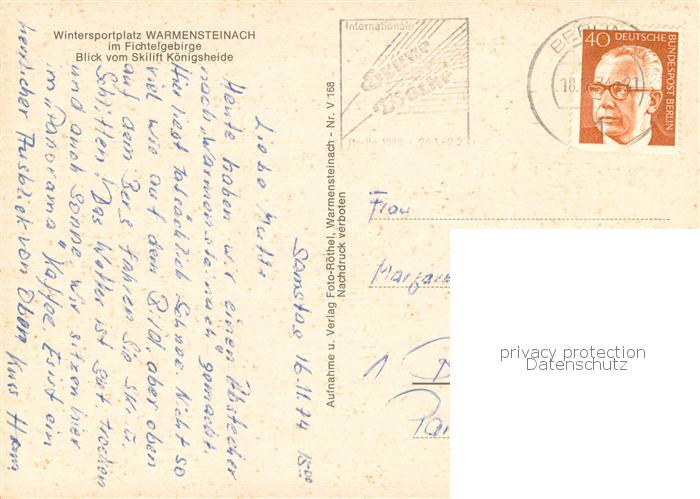 Wintersportplatz WARMENSTEINACH
im Fichtelgebirge
Blick vom Skilift Königsheide
Samstag 16.11.74 15.00
Liebe Mutti
Heute haben wir einen Abstecher
nach Warmensteinach gemacht.
Hier liegt tatsächlich Schnee. Nicht so
viel wie auf dem Bild, aber oben
auf dem Berg fahren sie Ski u.
Schlitten! Das Wetter ist gut trocken
und auch Sonne. Wir sitzen hier
im "Panorama" Kaffee. Es ist ein
herrlicher Ausblick von Oben
Aufnahme u. Verlag Foto-Röthel, Warmensteinach - Nr. V 168
Nachdruck verboten
Internationale
Grüne
Woche
BERLIN
40 DEUTSCHE
BUNDESPOST BERLIN
Frau
1
privacy protection
Datenschutz